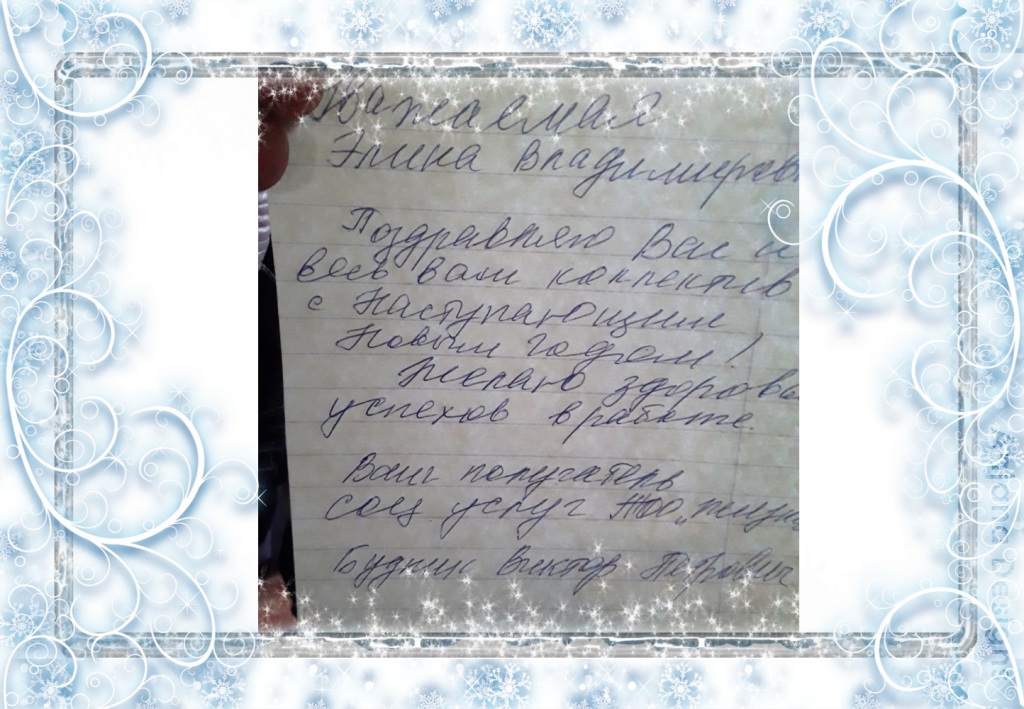 Уважаемая
Элина Владимировн
Поздравляю Вас и
весь ваш коллектив
с Наступающим
Новым годом!
Желаю здоровья
успехов в работе.
Ваш получатель
соц услуг
Виктор Петрович